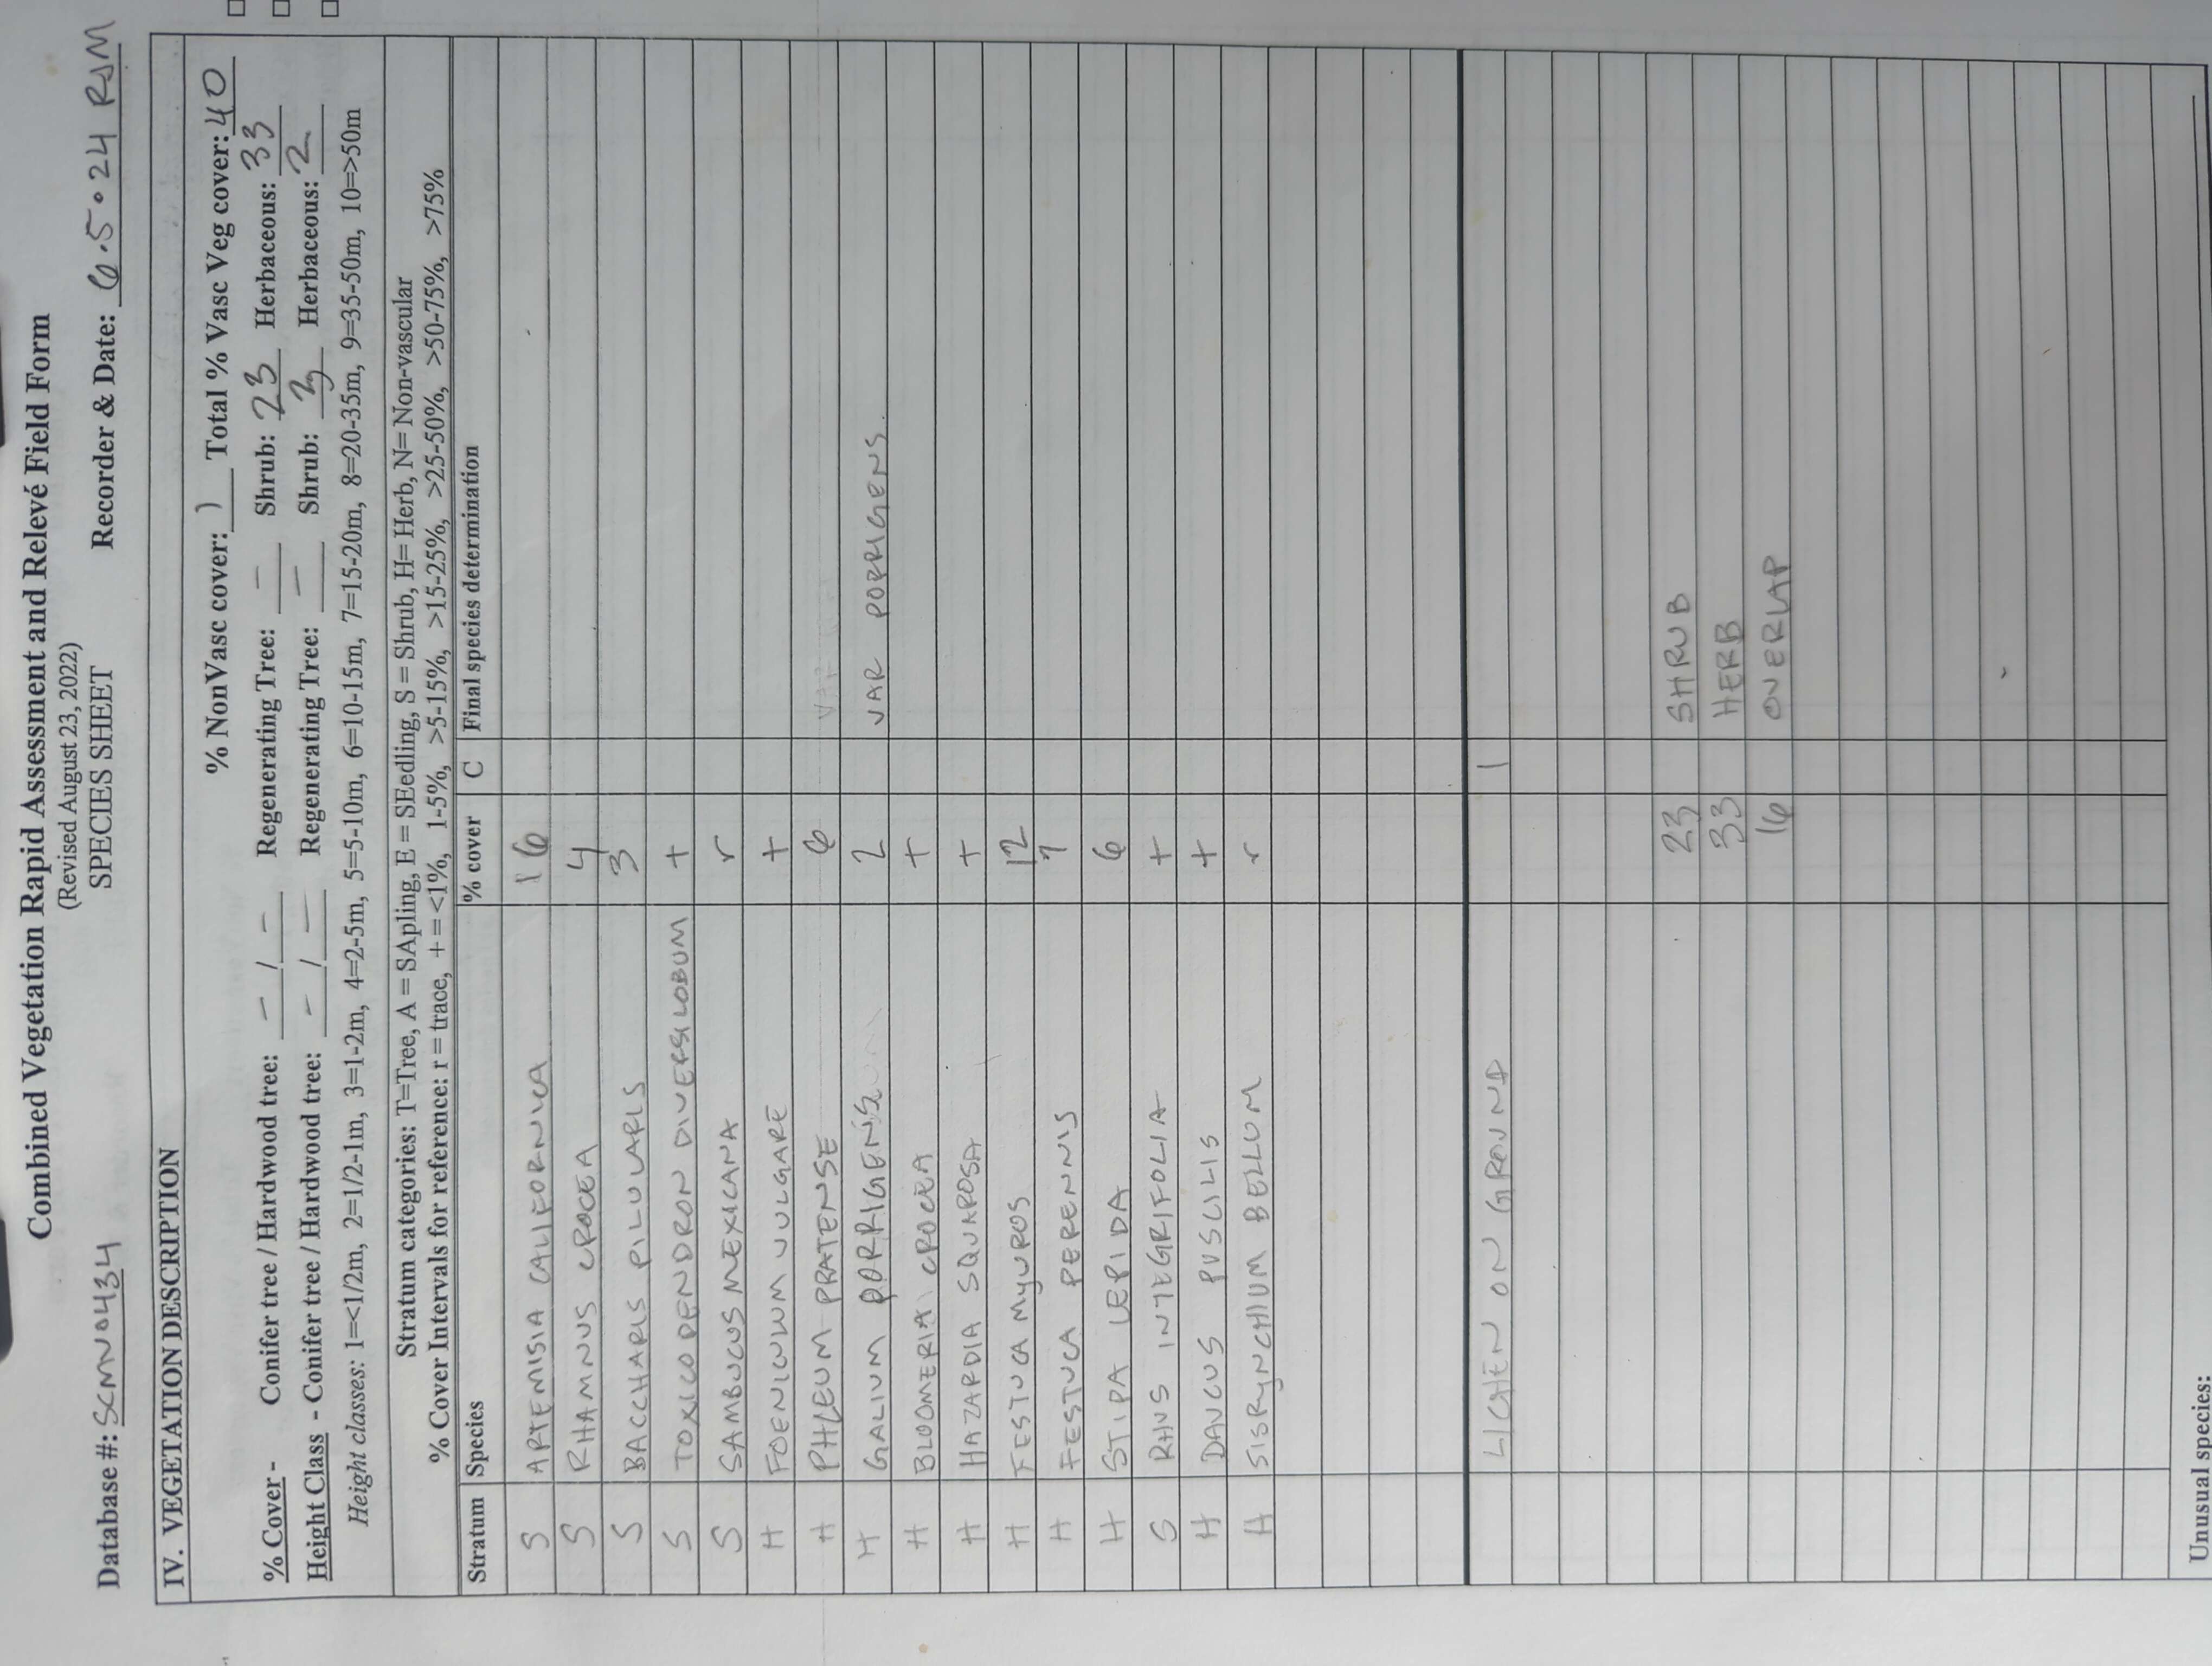 Combined Vegetation Rapid Assessment and Relevé Field Form
(Revised August 23, 2022)
SPECIES SHEET
Database #: SCMN0434 Recorder & Date: 6.5.24 RJM
IV. VEGETATION DESCRIPTION
% NonVasc cover: 1 Total % Vasc Veg cover: 40
% Cover - Conifer tree / Hardwood tree: - / - Regenerating Tree: - Shrub: 23 Herbaceous: 33
Height Class - Conifer tree / Hardwood tree: - / - Regenerating Tree: - Shrub: Herbaceous: 2
Height classes: 1=<1/2m, 2=1/2-1m, 3=1-2m, 4=2-5m, 5=5-10m, 6=10-15m, 7=15-20m, 8=20-35m, 9=35-50m, 10=>50m
Stratum categories: T=Tree, A = SApling, E = SEedling, S = Shrub, H= Herb, N= Non-vascular
% Cover Intervals for reference: r = trace, + = <1%, 1-5%, >5-15%, >15-25%, >25-50%, >50-75%, >75%
Stratum Species % cover C Final species determination
S ARTEMISIA CALIFORNICA 16
S RHAMNUS CROCEA 4
S BACCHARIS PILULARIS 3
S TOXICODENDRON DIVERSILOBUM +
S SAMBUCUS MEXICANA r
H FOENICULUM VULGARE +
H PHLEUM PRATENSE 6
H GALIUM PORRIGENS 2 VAR PORRIGENS
H BLOOMERIA CROCEA +
H HAZARDIA SQUARROSA +
H FESTUCA MYUROS 12
H FESTUCA PERENNIS 7
H STIPA LEPIDA 6
S RHUS INTEGRIFOLIA +
H DAUCUS PUSCILIS +
H SISRYNCHIUM BELLUM r
LICHEN ON GROUND 1
23 SHRUB
33 HERB
16 OVERLAP
Unusual species: